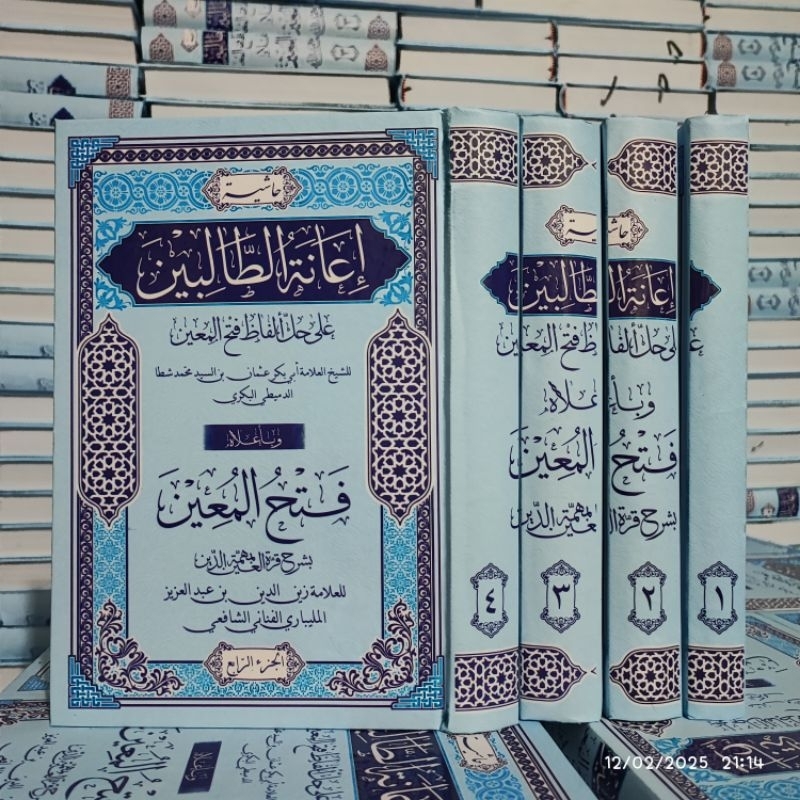 حاشية
إعانة الطالبين
على حل ألفاظ فتح المعين
للشيخ العلامة أبي بكر عثمان بن السيد محمد شطا
الدميطي البكري
وبأعلاه
فَتْحُ المُعِيْن
بشرح قرة العين بمهمة الدين
للعلامة زين الدين بن عبد العزيز
المليباري الفناني الشافعي
الجزء الرابع
حاشية
إعانة الطالبين
على حل ألفاظ فتح المعين
وبأعلاه
فتح المعين
بشرح قرة العين بمهمة الدين
٤
٣
٢
١
12/02/2025 21:14